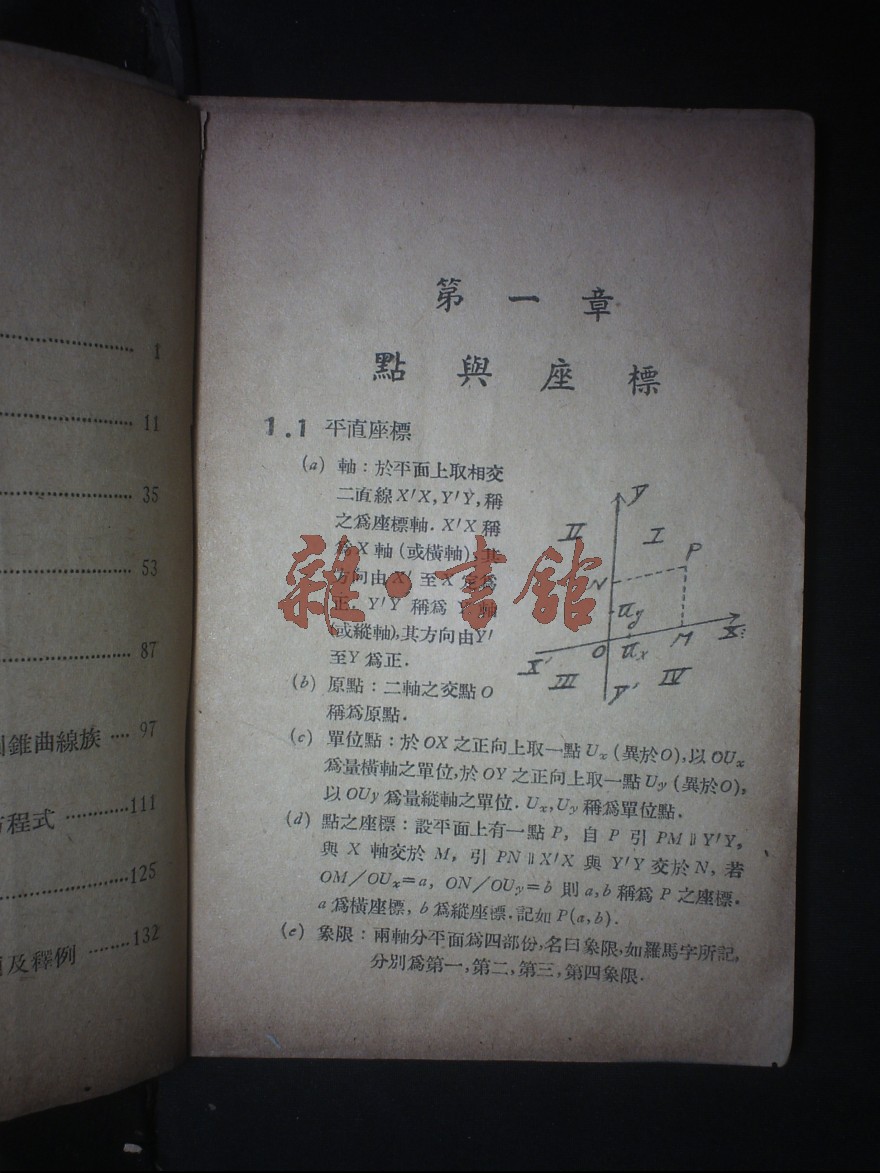 1
11
35
53
87
錐曲線族 ···· 97
程式 ···········111
···········125
及釋例 ········132
第一章
點與座標
1.1 平直座標
(a) 軸：於平面上取相交
二直線X′X, Y′Y, 稱
之爲座標軸. X′X 稱
爲X軸(或橫軸), 其
方向由X′至X定爲
正. Y′Y 稱爲Y軸
(或縱軸), 其方向由Y′
至Y爲正.
Y
II
I
P
N
Uy
O
Ux
M
X
X′
III
Y′
IV
(b) 原點：二軸之交點O
稱爲原點.
(c) 單位點：於OX之正向上取一點Ux(異於O), 以OUx
爲量橫軸之單位, 於OY之正向上取一點Uy(異於O),
以OUy爲量縱軸之單位. Ux, Uy稱爲單位點.
(d) 點之座標：設平面上有一點P, 自P引PM∥Y′Y,
與X軸交於M, 引PN∥X′X與Y′Y交於N, 若
OM/OUx=a, ON/OUy=b則a, b稱爲P之座標.
a爲橫座標, b爲縱座標. 記如P(a, b).
(e) 象限：兩軸分平面爲四部份, 名曰象限, 如羅馬字所記,
分別爲第一, 第二, 第三, 第四象限.
雜·書館